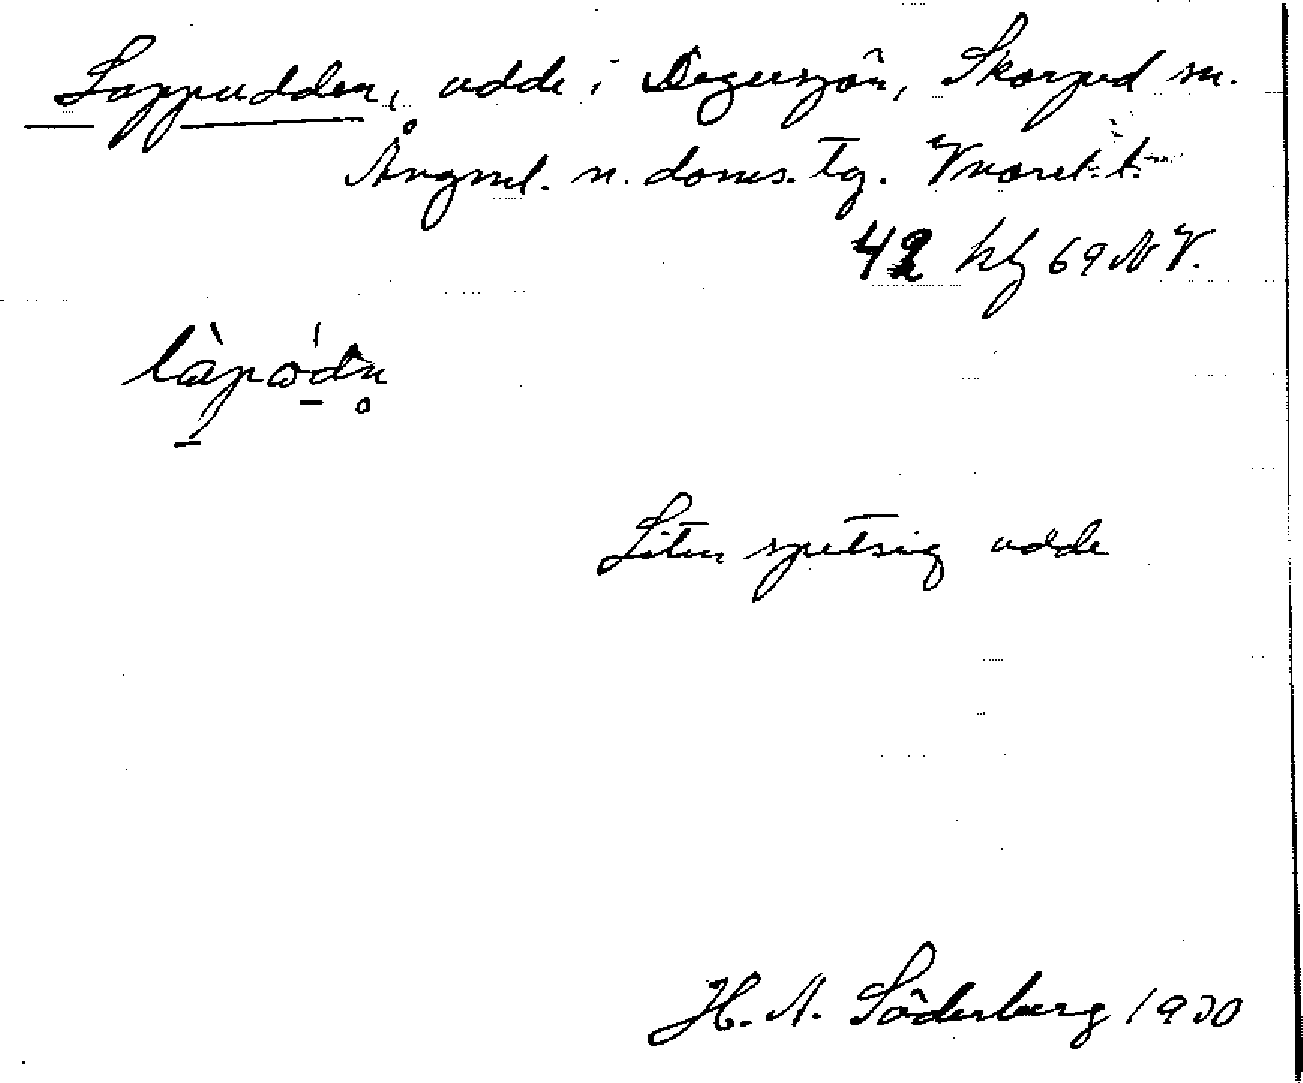 Lappudden, udde i Degersjön, Skorped sn.
Ångml. n. doms. tg.
42 hlj 69 NV.
làpódn
Liten spetsig udde
H. A. Söderberg 1930